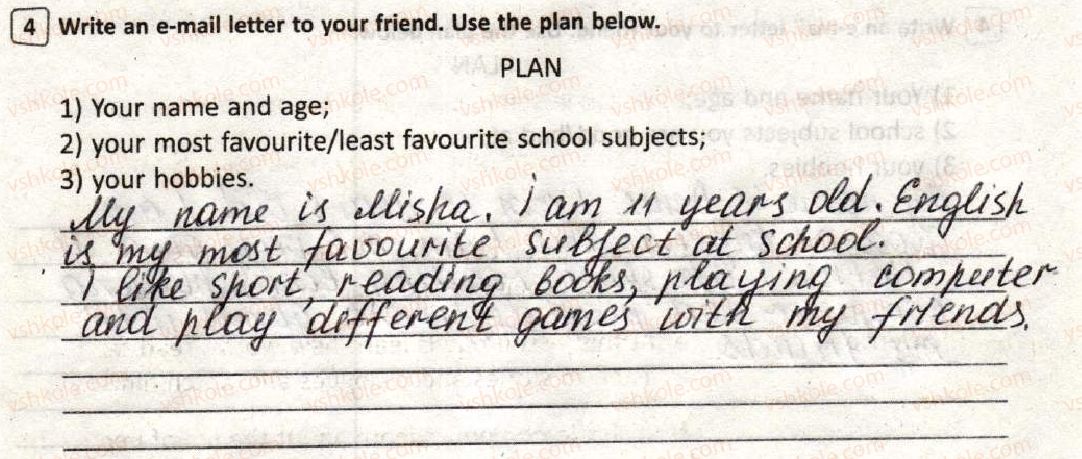 4 Write an e-mail letter to your friend. Use the plan below.
PLAN
1) Your name and age;
2) your most favourite/least favourite school subjects;
3) your hobbies.
My name is Misha. I am 11 years old. English
is my most favourite subject at school.
I like sport, reading books, playing computer
and play different games with my friends.